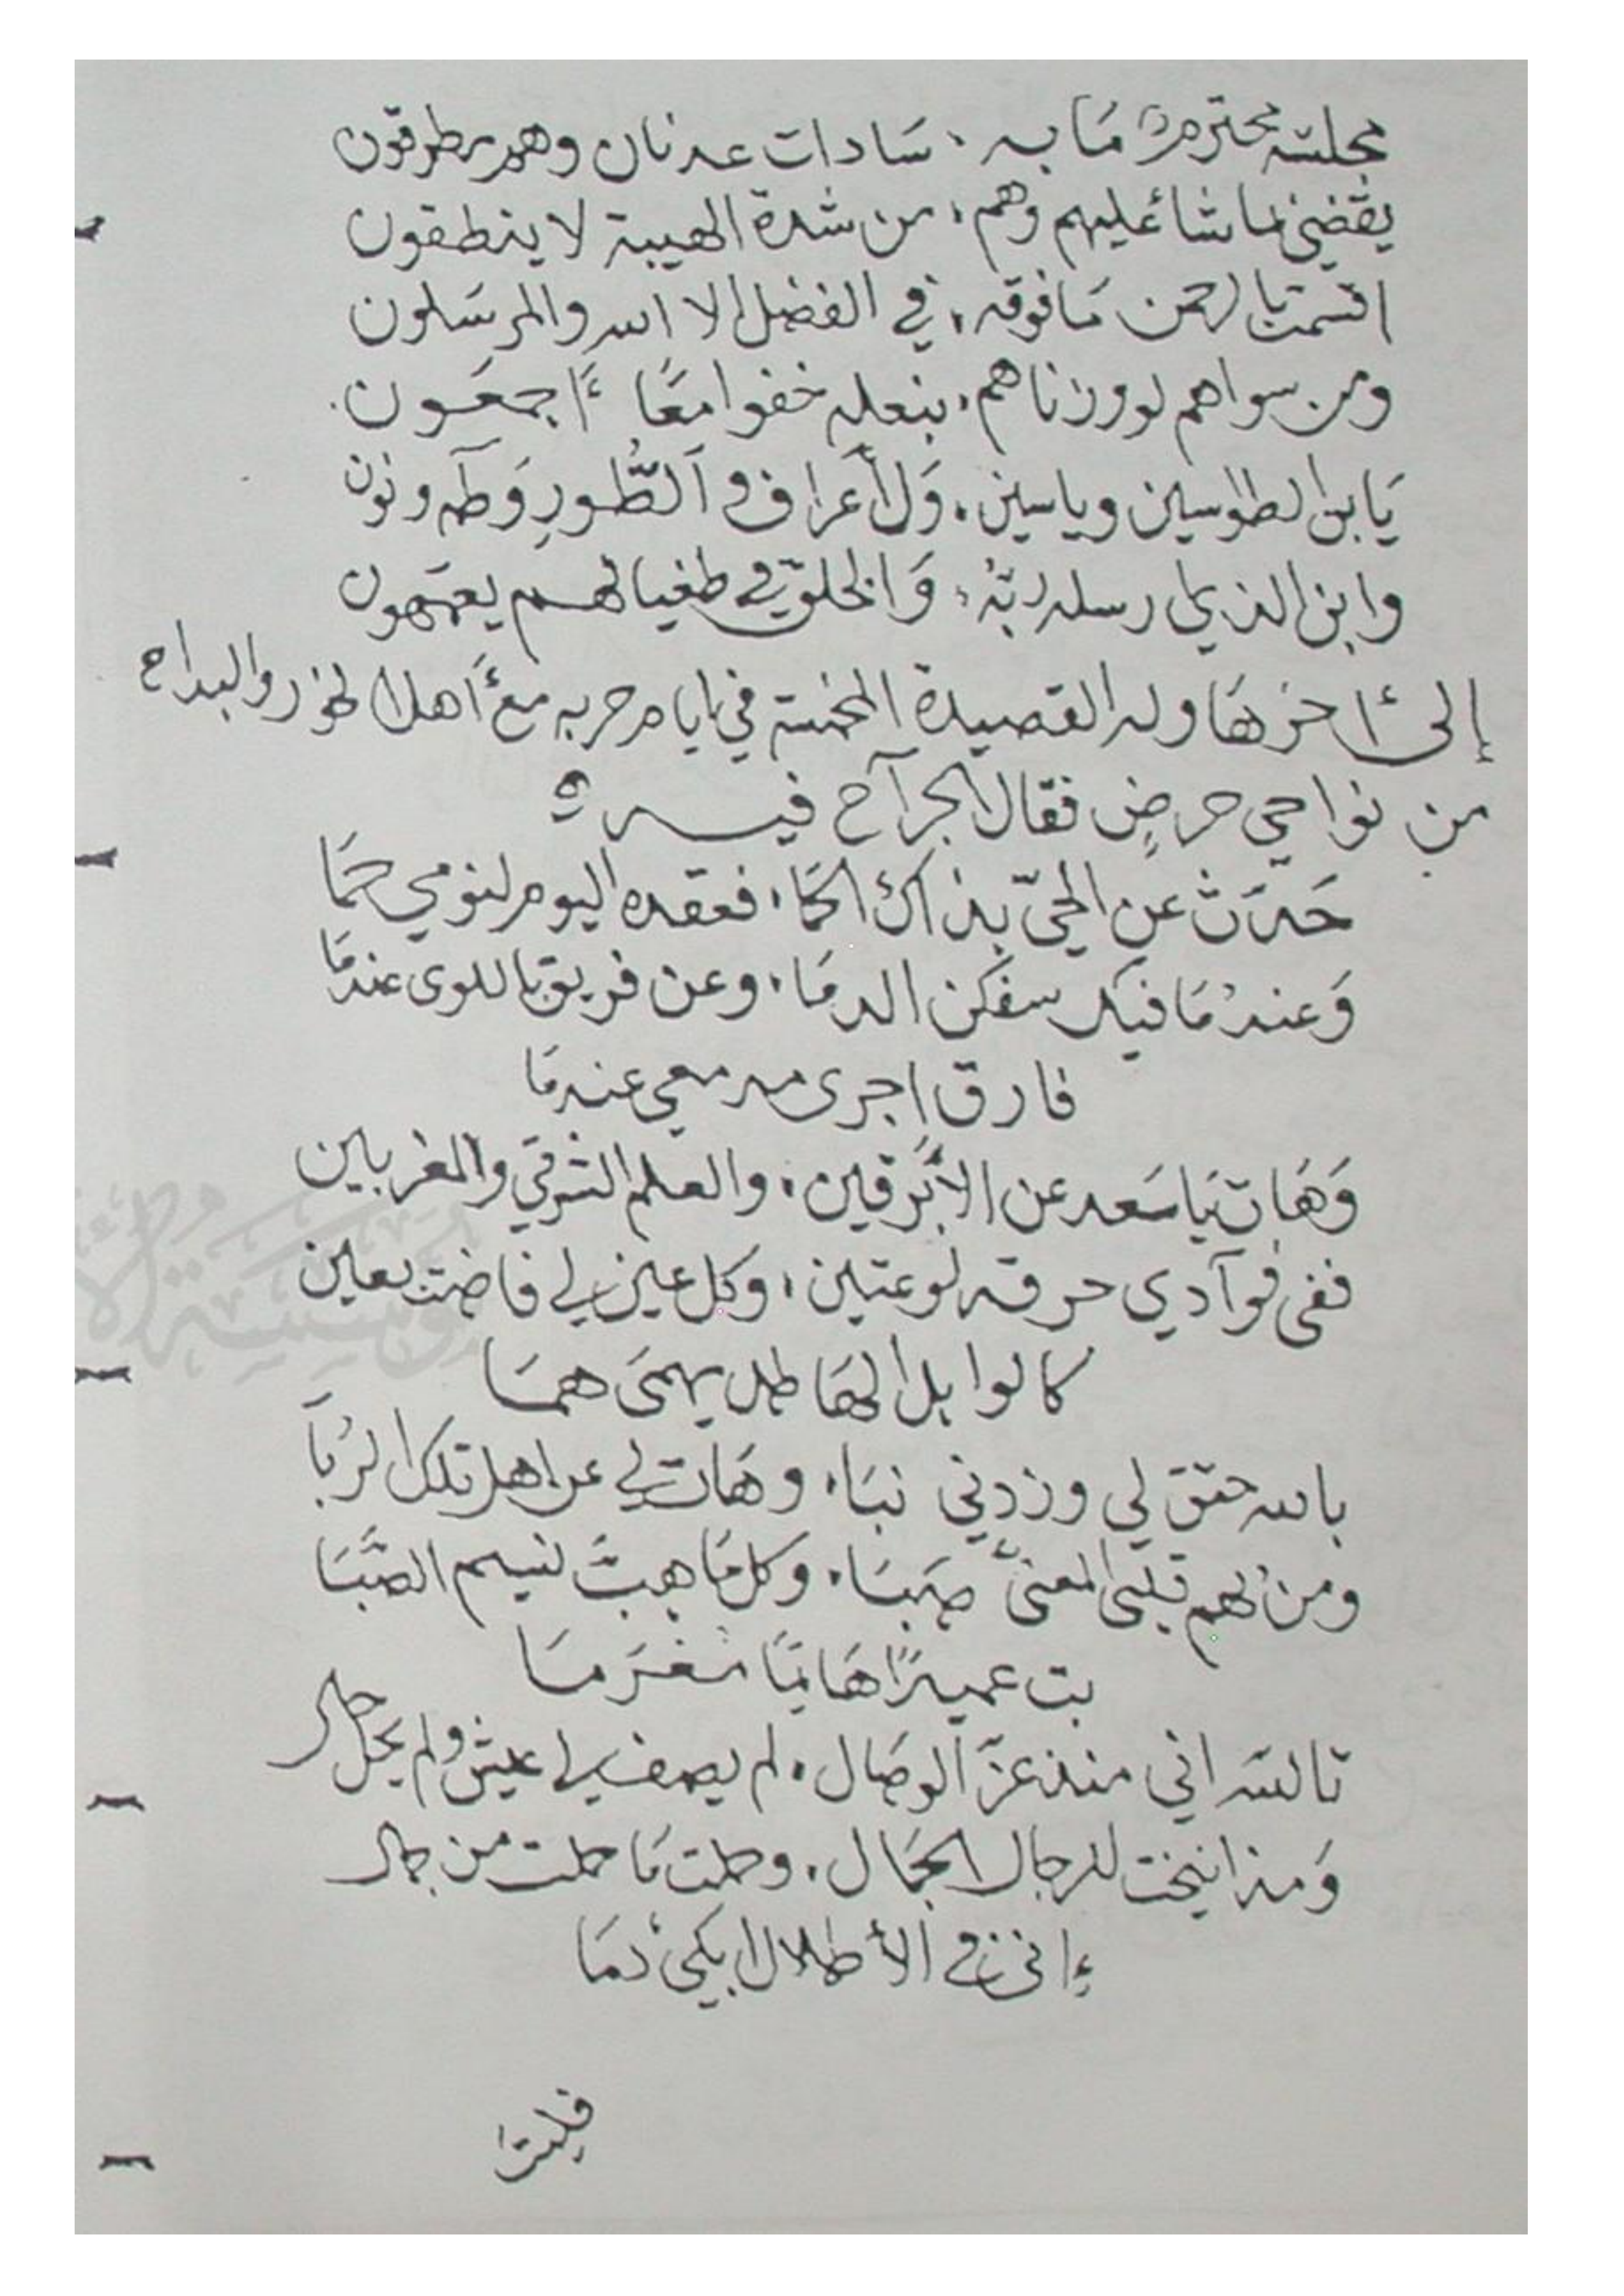 مجلسه محترم مَا به ، سَادات عدنان وهم مطرقون
يقضي بما شا عليهم وهم ، من شدة الهيبة لا ينطقون
اقسمت بالرحمن مَا فوقه ، في الفضل الا الله والمرسَلون
ومن سواهم لو وزناهم ، بنعله خفوا معًا ءَاجمعَون
يَا بن الطواسين وياسين ، وَلأَعراف و اَلطُّورِ وَطٓه ونون
وابن الذي ارسله ربّهُ ، وَالخلق في طغيانهم يعمَهون
إلى ءاخرهَا وله القصيدة المخمسة في ايام حربه مع ءَاهل الخزر والبداح
من نواحي حرضٍ فقال الجرآح فيه
حَدّث عن الحيّ بذاك الحمَا ، فعقده اليوم لنومي حمَا
وَعندمَا فيك سفكن الدمَا ، وعن فريق باللوى عندمَا
فارق اجرى مدمعي عندمَا
وَهَات يَا سَعد عن الأَبَرقين ، والعلم الشرقي والمغربين
ففى فوآدي حرقه لوعتين ، وكل عين لي فاضت بعين
كالوابل الهَاطل يهمىَ همَا
بالله حقق لي وزدني نبَا ، وهَات لي عن اهل تلك الرُبَا
ومن لهم قلبى المعنىّ صبَا ، وكل مَا هبتَ نسيم الصَّبَا
بت عميدًا هَايمًا مغرَمَا
تالله اني منذ عزّ الوصَال ، لم يصف لي عيش ولم يحل حال
وَمذ انيخت للرحال الجمَال ، وحملت مَا حملت من جمال
ءِانني في الأطلال ابكي دمَا
فليت